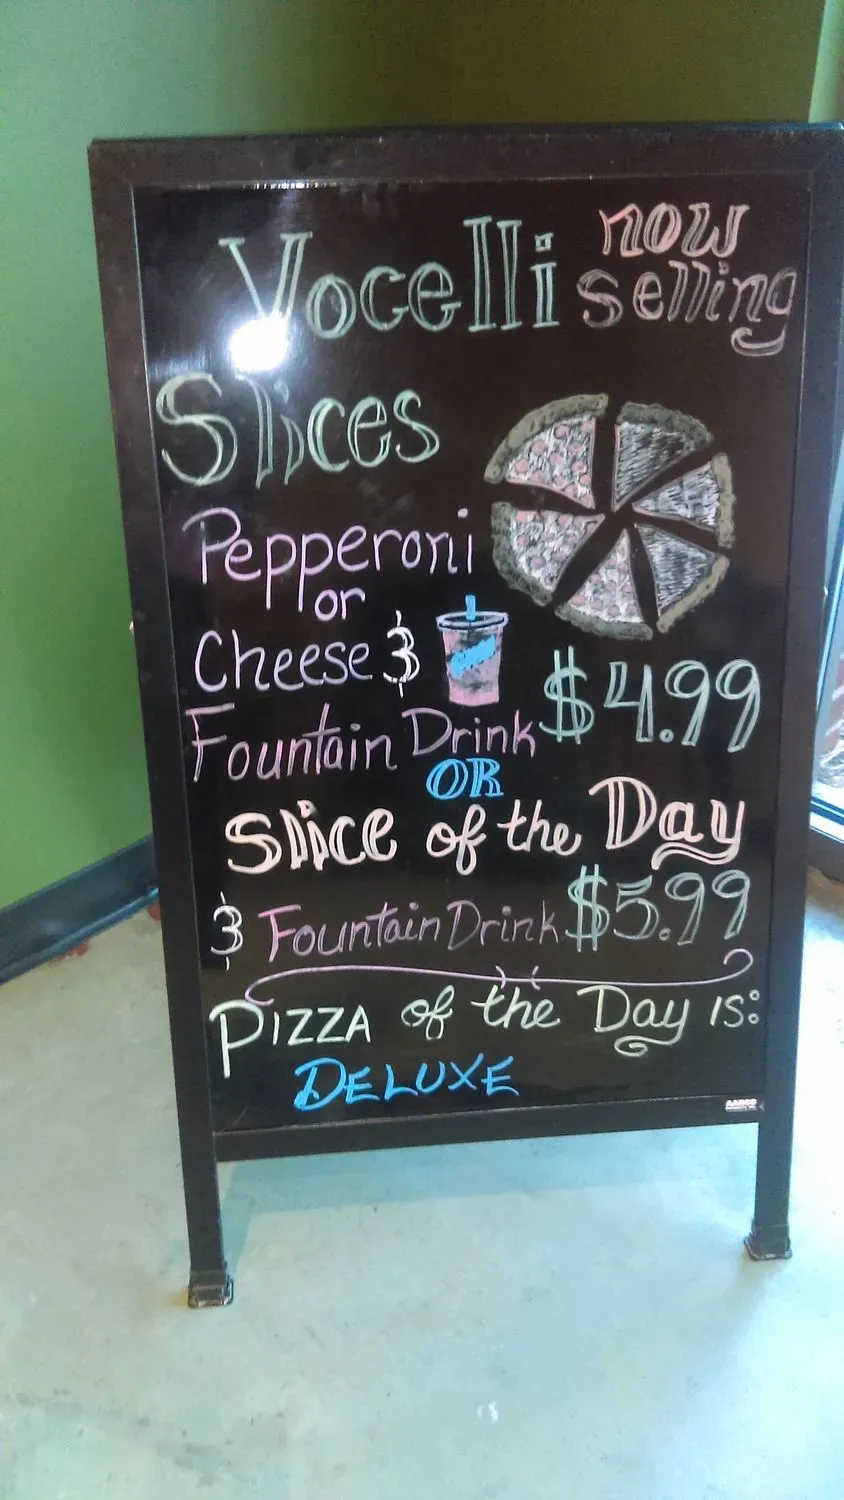 Vocelli now
selling
Slices
Pepperoni
or
Cheese &
Fountain Drink $4.99
OR
Slice of the Day
& Fountain Drink $5.99
PIZZA of the Day is:
DELUXE
AARCO